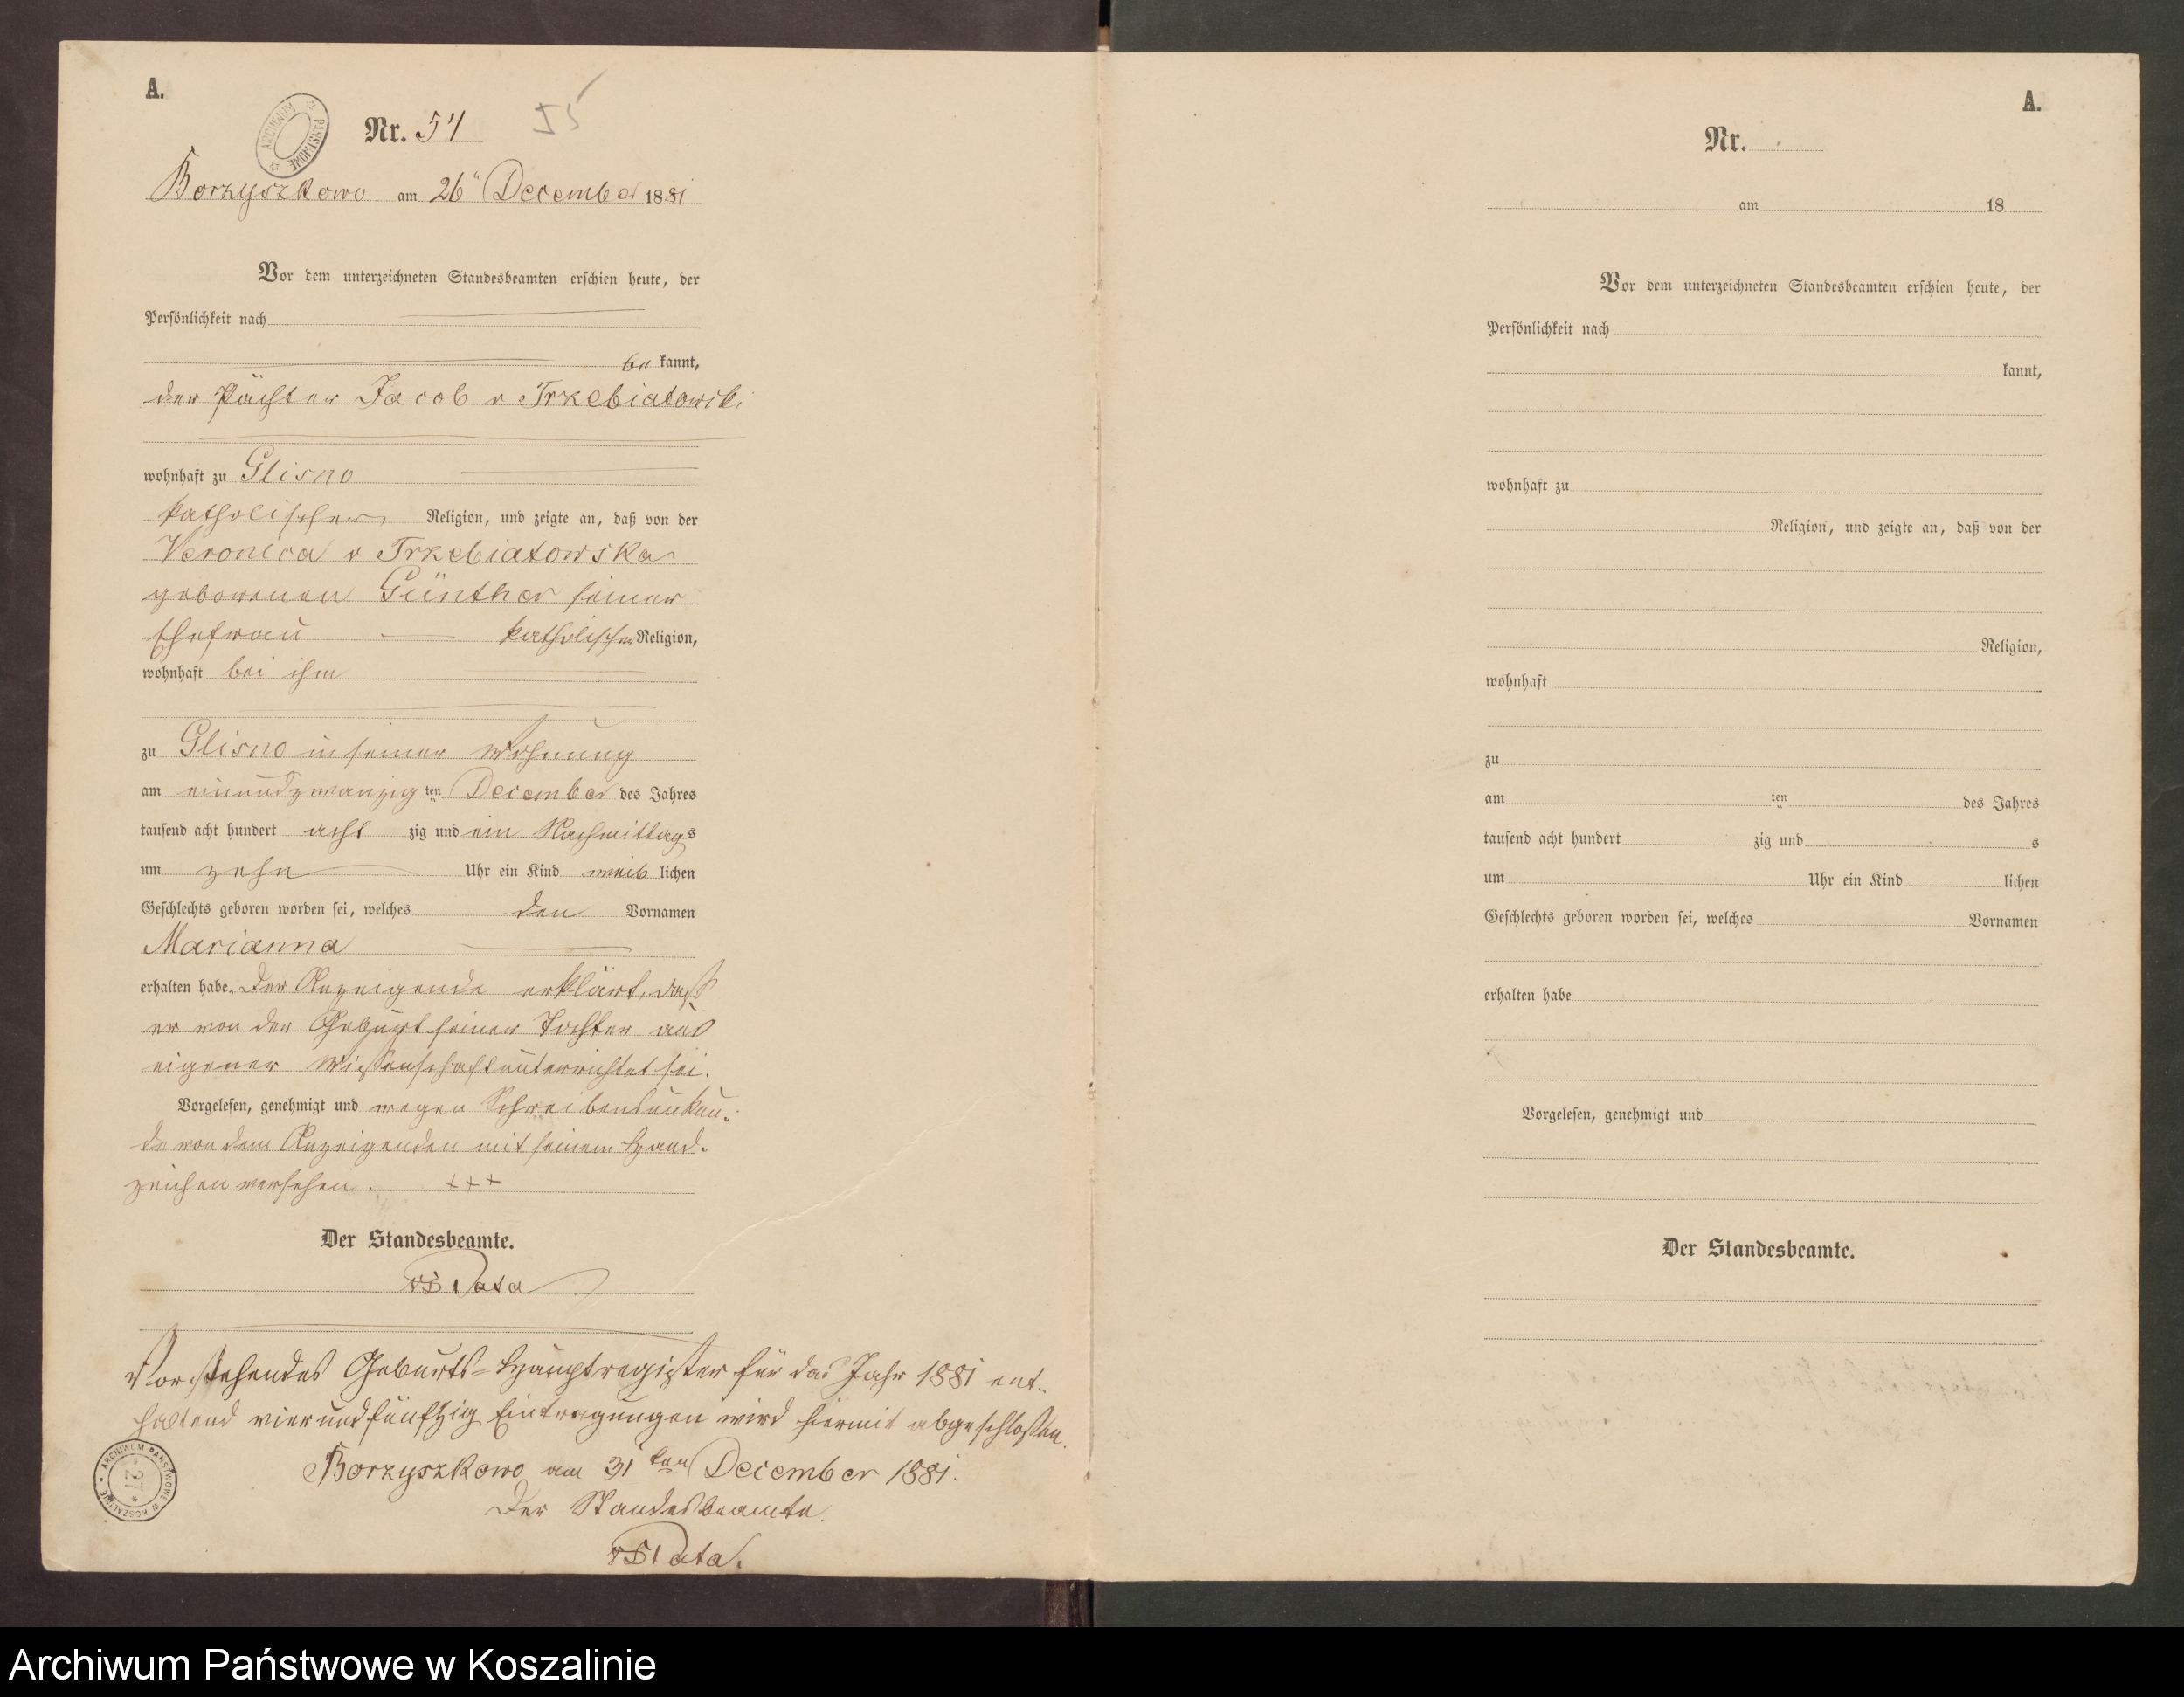 A.
ARCHIWUM PAŃSTWOWE
Nr. 54
55
Borzyszkowo am 26ᵗ December 1881
Vor dem unterzeichneten Standesbeamten erschien heute, der
Persönlichkeit nach
be kannt,
der Pächter Jacob v Trzebiatowski
wohnhaft zu Glisno
katholischer Religion, und zeigte an, daß von der
Veronica v Trzebiatowska
geborenen Günther seiner
Ehefrau katholischer Religion,
wohnhaft bei ihm
zu Glisno in seiner Wohnung
am einundzwanzig ten December des Jahres
tausend acht hundert acht zig und ein Nachmittags
um zehn Uhr ein Kind weib lichen
Geschlechts geboren worden sei, welches den Vornamen
Marianna
erhalten habe. Der Anzeigende erklärt, daß
er von der Geburt seiner Tochter aus
eigener Wissenschaft unterrichtet sei.
Vorgelesen, genehmigt und wegen Schreibensunkun-
de von dem Anzeigenden mit seinem Hand-
zeichen versehen. +++
Der Standesbeamte.
Vorstehendes Geburts-Hauptregister für das Jahr 1881 ent-
haltend vierundfünfzig Eintragungen wird hiermit abgeschlossen.
Borzyszkowo am 31ten December 1881.
Der Standesbeamte.
ARCHIWUM PAŃSTWOWE W KOSZALINIE
* 27 *
A.
Nr.
am 18
Vor dem unterzeichneten Standesbeamten erschien heute, der
Persönlichkeit nach
kannt,
wohnhaft zu
Religion, und zeigte an, daß von der
Religion,
wohnhaft
zu
am ten des Jahres
tausend acht hundert zig und s
um Uhr ein Kind lichen
Geschlechts geboren worden sei, welches Vornamen
erhalten habe
Vorgelesen, genehmigt und
Der Standesbeamte.
Archiwum Państwowe w Koszalinie